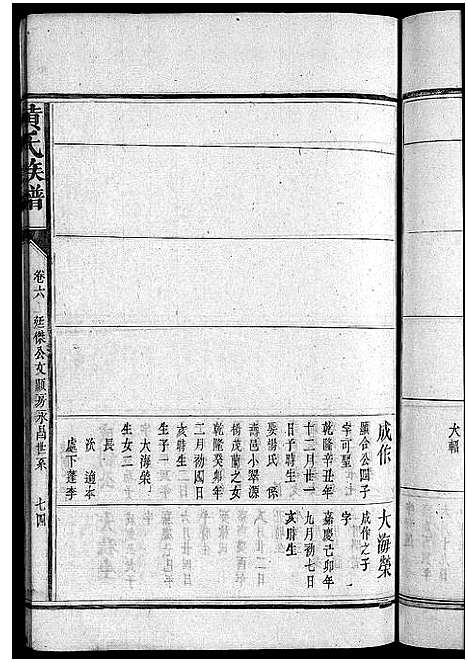 大輻
成作
顯合公圓子
字可聖
乾隆辛丑年
十二月廿一
日子時生
娶楊氏 係
壽邑小翠源
楊茂蘭之女
乾隆癸卯年
二月初四日
亥時生
生子一
大海榮
生女二
長
次適本
處下蓬李
大海榮
成作之子
字
嘉慶己卯年
九月初七日
亥時生
黃氏族譜
卷六 廷傑公文顯房永昌世系 七四